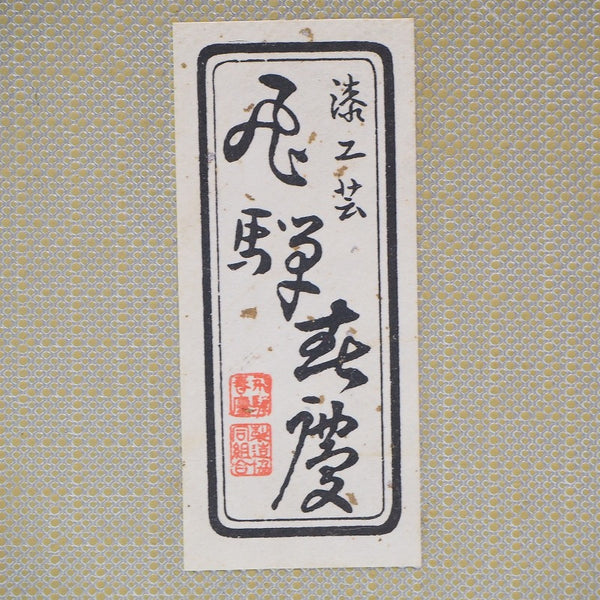 漆工芸
飛騨春慶
飛騨
春慶
同組合